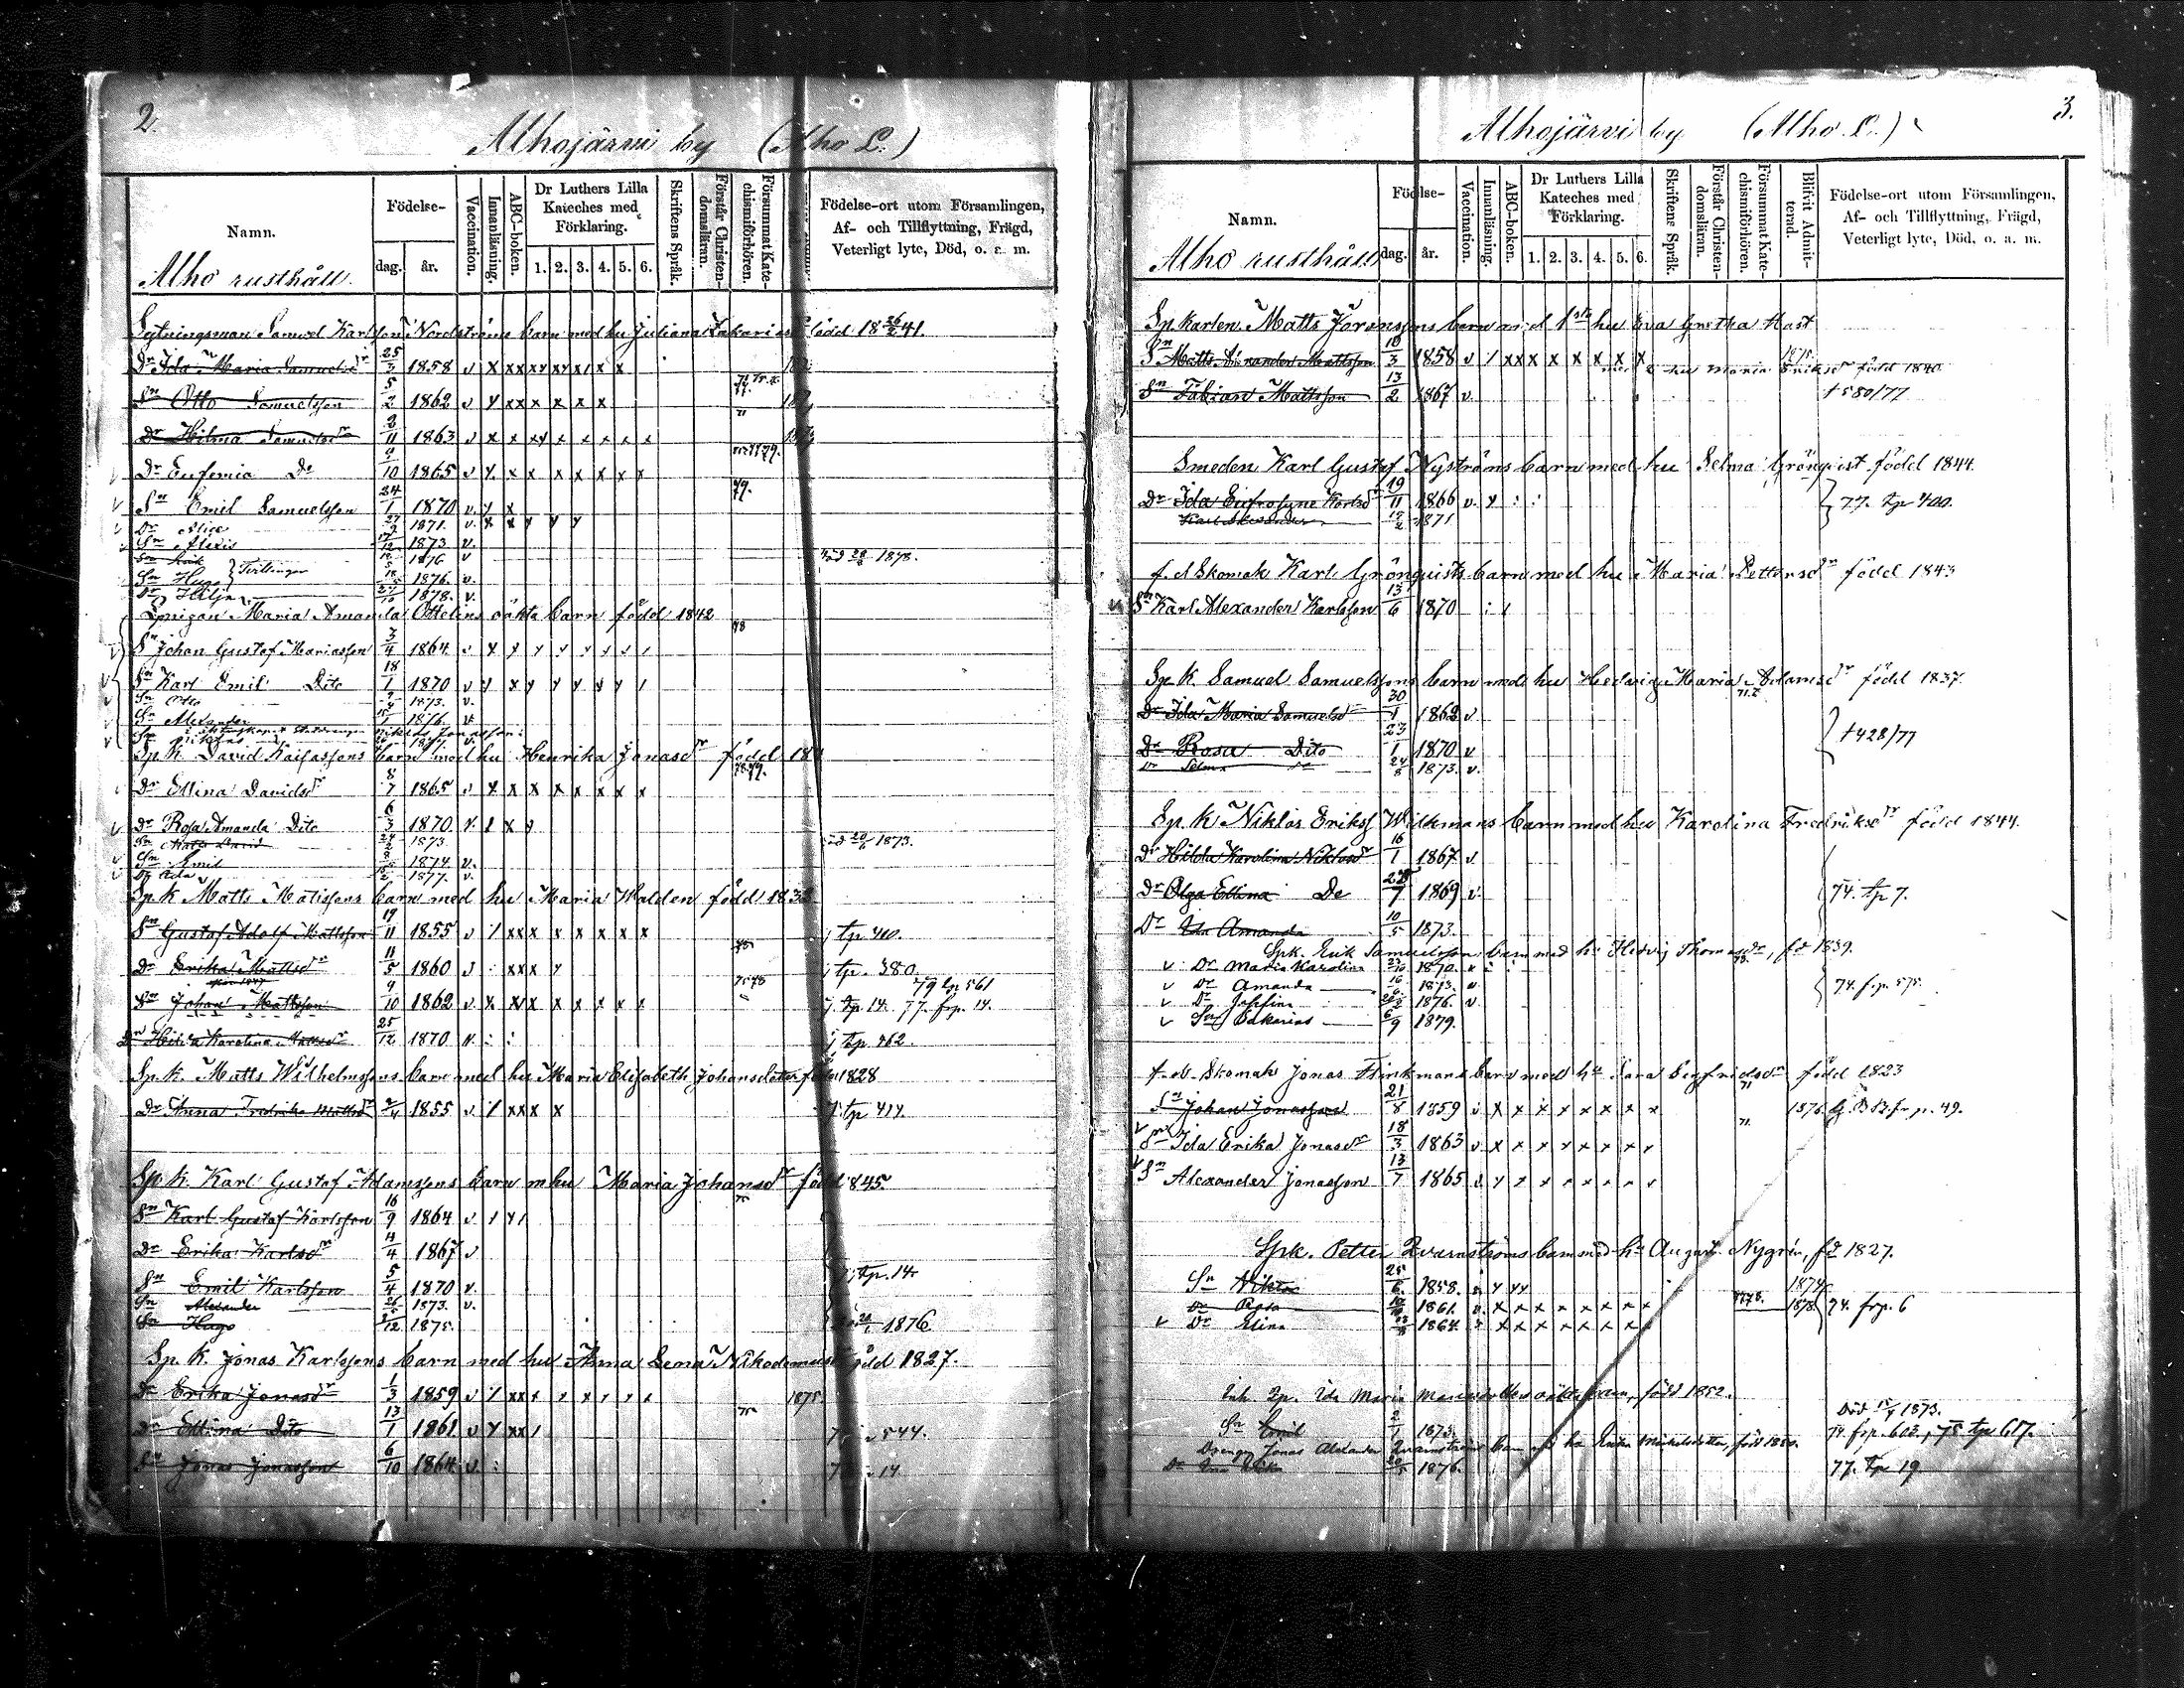 2.
Alhojärvi by (Alho L.)
Namn.
Födelse-
dag.
år.
Vaccination.
Innanläsning.
ABC-boken.
Dr Luthers Lilla Kateches med Förklaring.
1. 2. 3. 4. 5. 6.
Skriftens Språk.
Förstår Christendomsläran.
Försummat Katechismiförhören.
Födelse-ort utom Församlingen, Af- och Tillflyttning, Frägd, Veterligt lyte, Död, o. s. m.
Alho rusthåll.
Sytningsman Samuel Karlssons Nordströms barn med hu Juliana Zakariasdr född 18 26/2 41.
Dr Ida Maria Samuelsdr 25/3 1858 v x xx xy xy x x x
Sn Otto Samuelsson 5/2 1862 v y xx x x x x
Dr Hilma Samuelsdr 2/11 1863 v x x xy x x x x x
Dr Eufemia Do 9/10 1865 v y x x x x x x x
Sn Emil Samuelsson 24/1 1870 v y x
Dr Alice 1871. v. x x y y y
Sn Alexis 17/12 1873 v.
Sn Erik 1876 v död 28/8 1878.
Sn Hugo } Tvillingar 1876. v.
Dr Hilja 1878. v.
Spigan Maria Amanda Ottelins oäkta barn född 1842
Sn Johan Gustaf Mariasson 3/4 1864 v x y y y y y y
Sn Karl Emil Dito 18/1 1870 v y x y y y y y
Sn Otto 1873. v.
Sn Alexander 1876. v.
Sn Niklas
Sp. K. David Kaifassons barn med hu Henrika Jonasdr född 184
Dr Ellina Davidsdr 8/7 1865 v x x x x x x x x
Dr Rosa Amanda Dito 6/3 1870 v. x y
Sn Matts David 1873 död 20/6 1873.
Sn Emil 1874 v.
Dr Ida 1877. v.
Sp. k Matts Matissons barn med hu Maria Walden född 1832
Sn Gustaf Adolf Mattsson 19/11 1855 v / xx x x x x x x tp 410.
Dr Erika Mattsdr 11/5 1860 v : xx x y tp. 380.
79 tp 561
Sn Johan Mattsson 9/10 1862 v x xx x x x x x x tp. 14. 77. frp. 14.
Dr Hilda Karolina Mattsdr 25/12 1870 v. : : tp. 462.
Sp. k. Matts Wilhelmssons barn med hu Maria Elisabeth Johansdotter född 1828
Dr Anna Fredrika Mattsdr 2/4 1855 v / xx x x tp 414.
Sp. k. Karl Gustaf Adamssons barn m hu Maria Johansdr född 1845.
Sn Karl Gustaf Karlsson 16/9 1864 v
Dr Erika Karlsdr 4/4 1867 v
Sn Emil Karlsson 5/4 1870 v. tp. 14.
Sn Alexander 1873. v.
Sn Hugo 1875. 1876
Sp. K. Jonas Karlssons barn med hu Anna Lena Nikodemusdr född 1827.
Dr Erika Jonasdr 1/3 1859 v / xx x x x x x x 1875.
Dr Ellina Dito 13/1 1861 v y xx / 544.
Sn Jonas Jonasson 6/10 1864 v. : 14.
3.
Alhojärvi by (Alho L.)
Namn.
Födelse-
dag.
år.
Vaccination.
Innanläsning.
ABC-boken.
Dr Luthers Lilla Kateches med Förklaring.
1. 2. 3. 4. 5. 6.
Skriftens Språk.
Förstår Christendomsläran.
Försummat Katechismiförhören.
Blifvit Admitterad.
Födelse-ort utom Församlingen, Af- och Tillflyttning, Frägd, Veterligt lyte, Död, o. a. m.
Alho rusthåll
Sp. Karlen Matts Joranssons barn med 1sta hu Eva Gretha Mast
Sn Matts Alexander Mattsson 10/3 1858 v / xx x x x x x x 1875.
med 2 hu Maria Eriksdr född 1840
Sn Fabian Mattsson 13/2 1867 v. t 580/77
Smeden Karl Gustaf Nyströms barn med hu Selma Grönqvist född 1844.
Dr Ida Eufrosyne Karlsdr 19/11 1866 v. y : : 77. tp 400.
Karl Alexander 1871
f. d Skomak Karl Grönquists barn med hu Maria Pettersdr född 1843
Sn Karl Alexander Karlsson 13/6 1870 : /
Sp. K. Samuel Samuelssons barn med hu Hedvig Maria Adamsdr född 1837.
Dr Ida Maria Samuelsdr 30/1 1862 v
Dr Rosa Dito 23/1 1870 v t 428/77
Dr Selma 24/8 1873. v.
Sp. k Niklas Erikss Wickmans barn med hu Karolina Fredriksdr född 1844.
Dr Hilda Karolina Niklasdr 16/1 1867 v
Dr Olga Ellina Do 1869 v. 74. tp 7.
Dr Ida Amanda 10/5 1873.
Spk. Erik Samuelsson barn med hu Hedvig Thomasdr, fd 1839.
Dr Maria Karolina 1870. x
Dr Amanda 1873. v. 74. frp. 575.
Dr Josefina 1876. v
Sn Zakarias 6/9 1879.
f. d. Skomak Jonas Flinkmans barn med hu Sara Sigfridsdr född 1823
Sn Johan Jonasson 21/8 1859 v x x x x x x x 1876.
Dr Ida Erika Jonasdr 18/3 1863 v x x x x x x x
Sn Alexander Jonasson 13/7 1865 v y x x x x x x
Spk. Petter Qvarnströms barn med hu August. Nygrén, fd 1827.
Sn Viktor 25/6 1858. 1874
Dr Rosa 1861. v. x x x x x x x x 1878 74. frp. 6
Dr Elina 1864
Inh. Sp. Ida Maria Mariasdotters oäkta barn, född 1852.
Sn Emil 2/1 1873. Död 1873. 74. frp. 603., 75 tp 617.
Drengen Jonas Alexander Qvarnströms barn med hu Erika Mickelsdotter, född 1850.
1876. 77. tp 19.